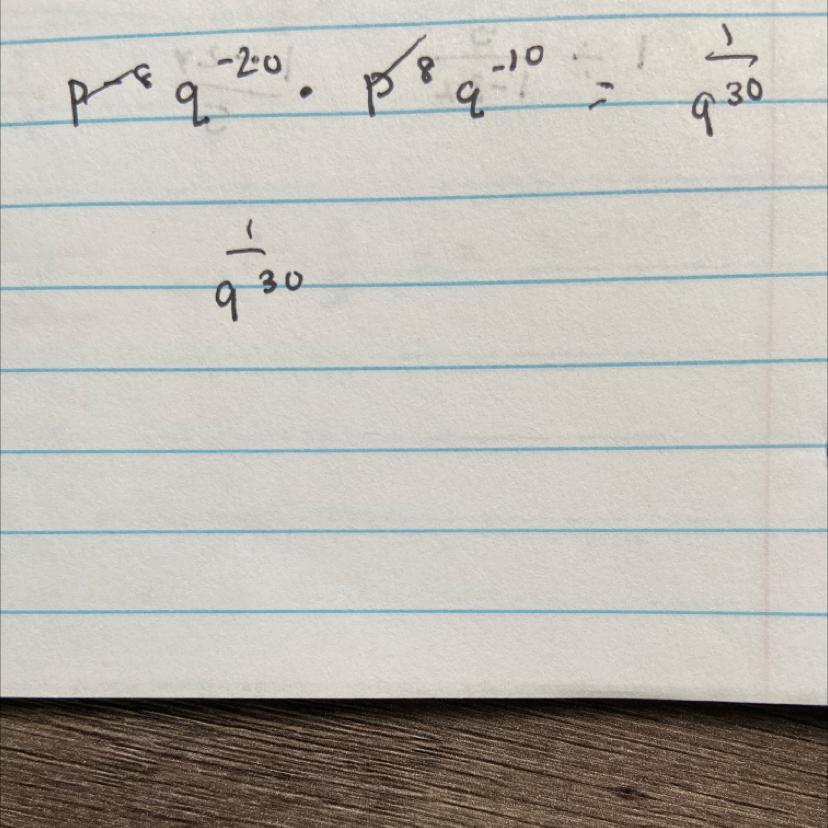 p⁻⁸ q⁻²⁰ · p⁸ q⁻¹⁰ = 1/q³⁰
1/q³⁰